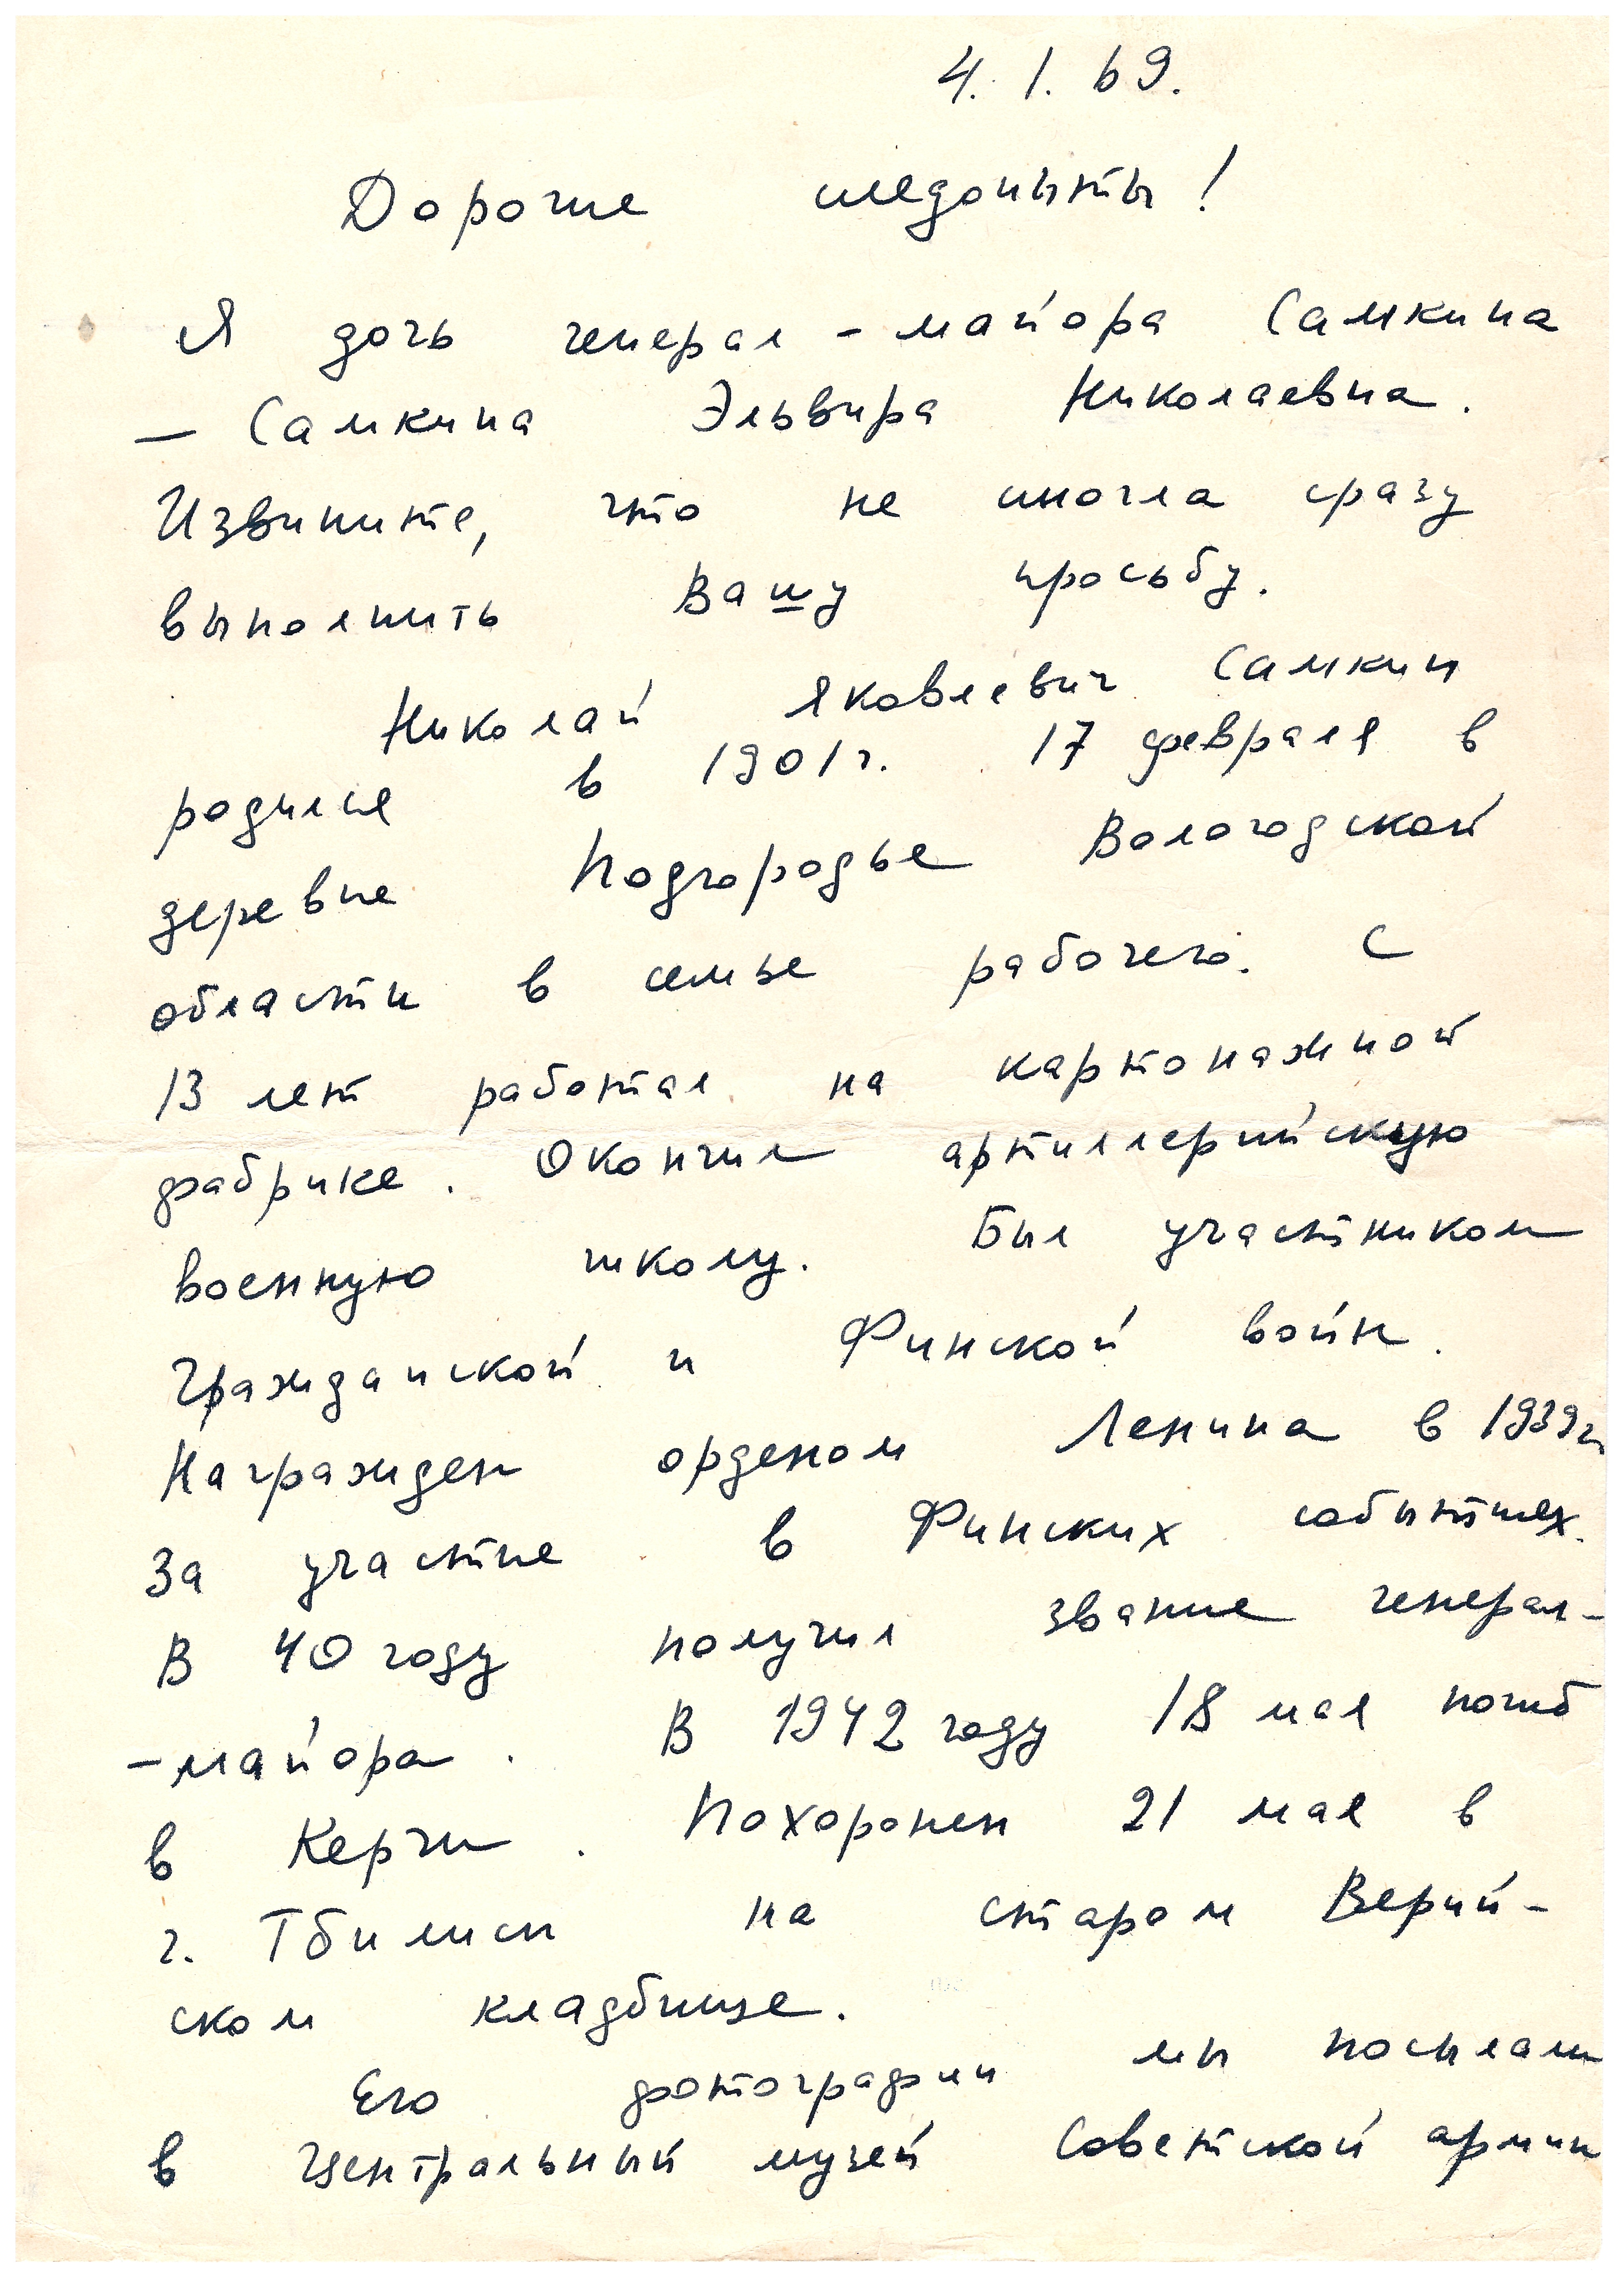 4. 1. 69.
Дорогие следопыты!
Я дочь генерал-майора Самкина
— Самкина Эльвира Николаевна.
Извините, что не смогла сразу
выполнить Вашу просьбу.
Николай Яковлевич Самкин
родился в 1901г. 17 февраля в
деревне Подгородье Вологодской
области в семье рабочего. С
13 лет работал на картонажной
фабрике. Окончил артиллерийскую
военную школу. Был участником
Гражданской и Финской войн.
Награжден орденом Ленина в 1939г
за участие в Финских событиях.
В 40 году получил звание генерал-
-майора. В 1942 году 18 мая погиб
в Керчи. Похоронен 21 мая в
г. Тбилиси на старом Верий-
ском кладбище.
Его фотографии мы посылали
в Центральный музей Советской армии